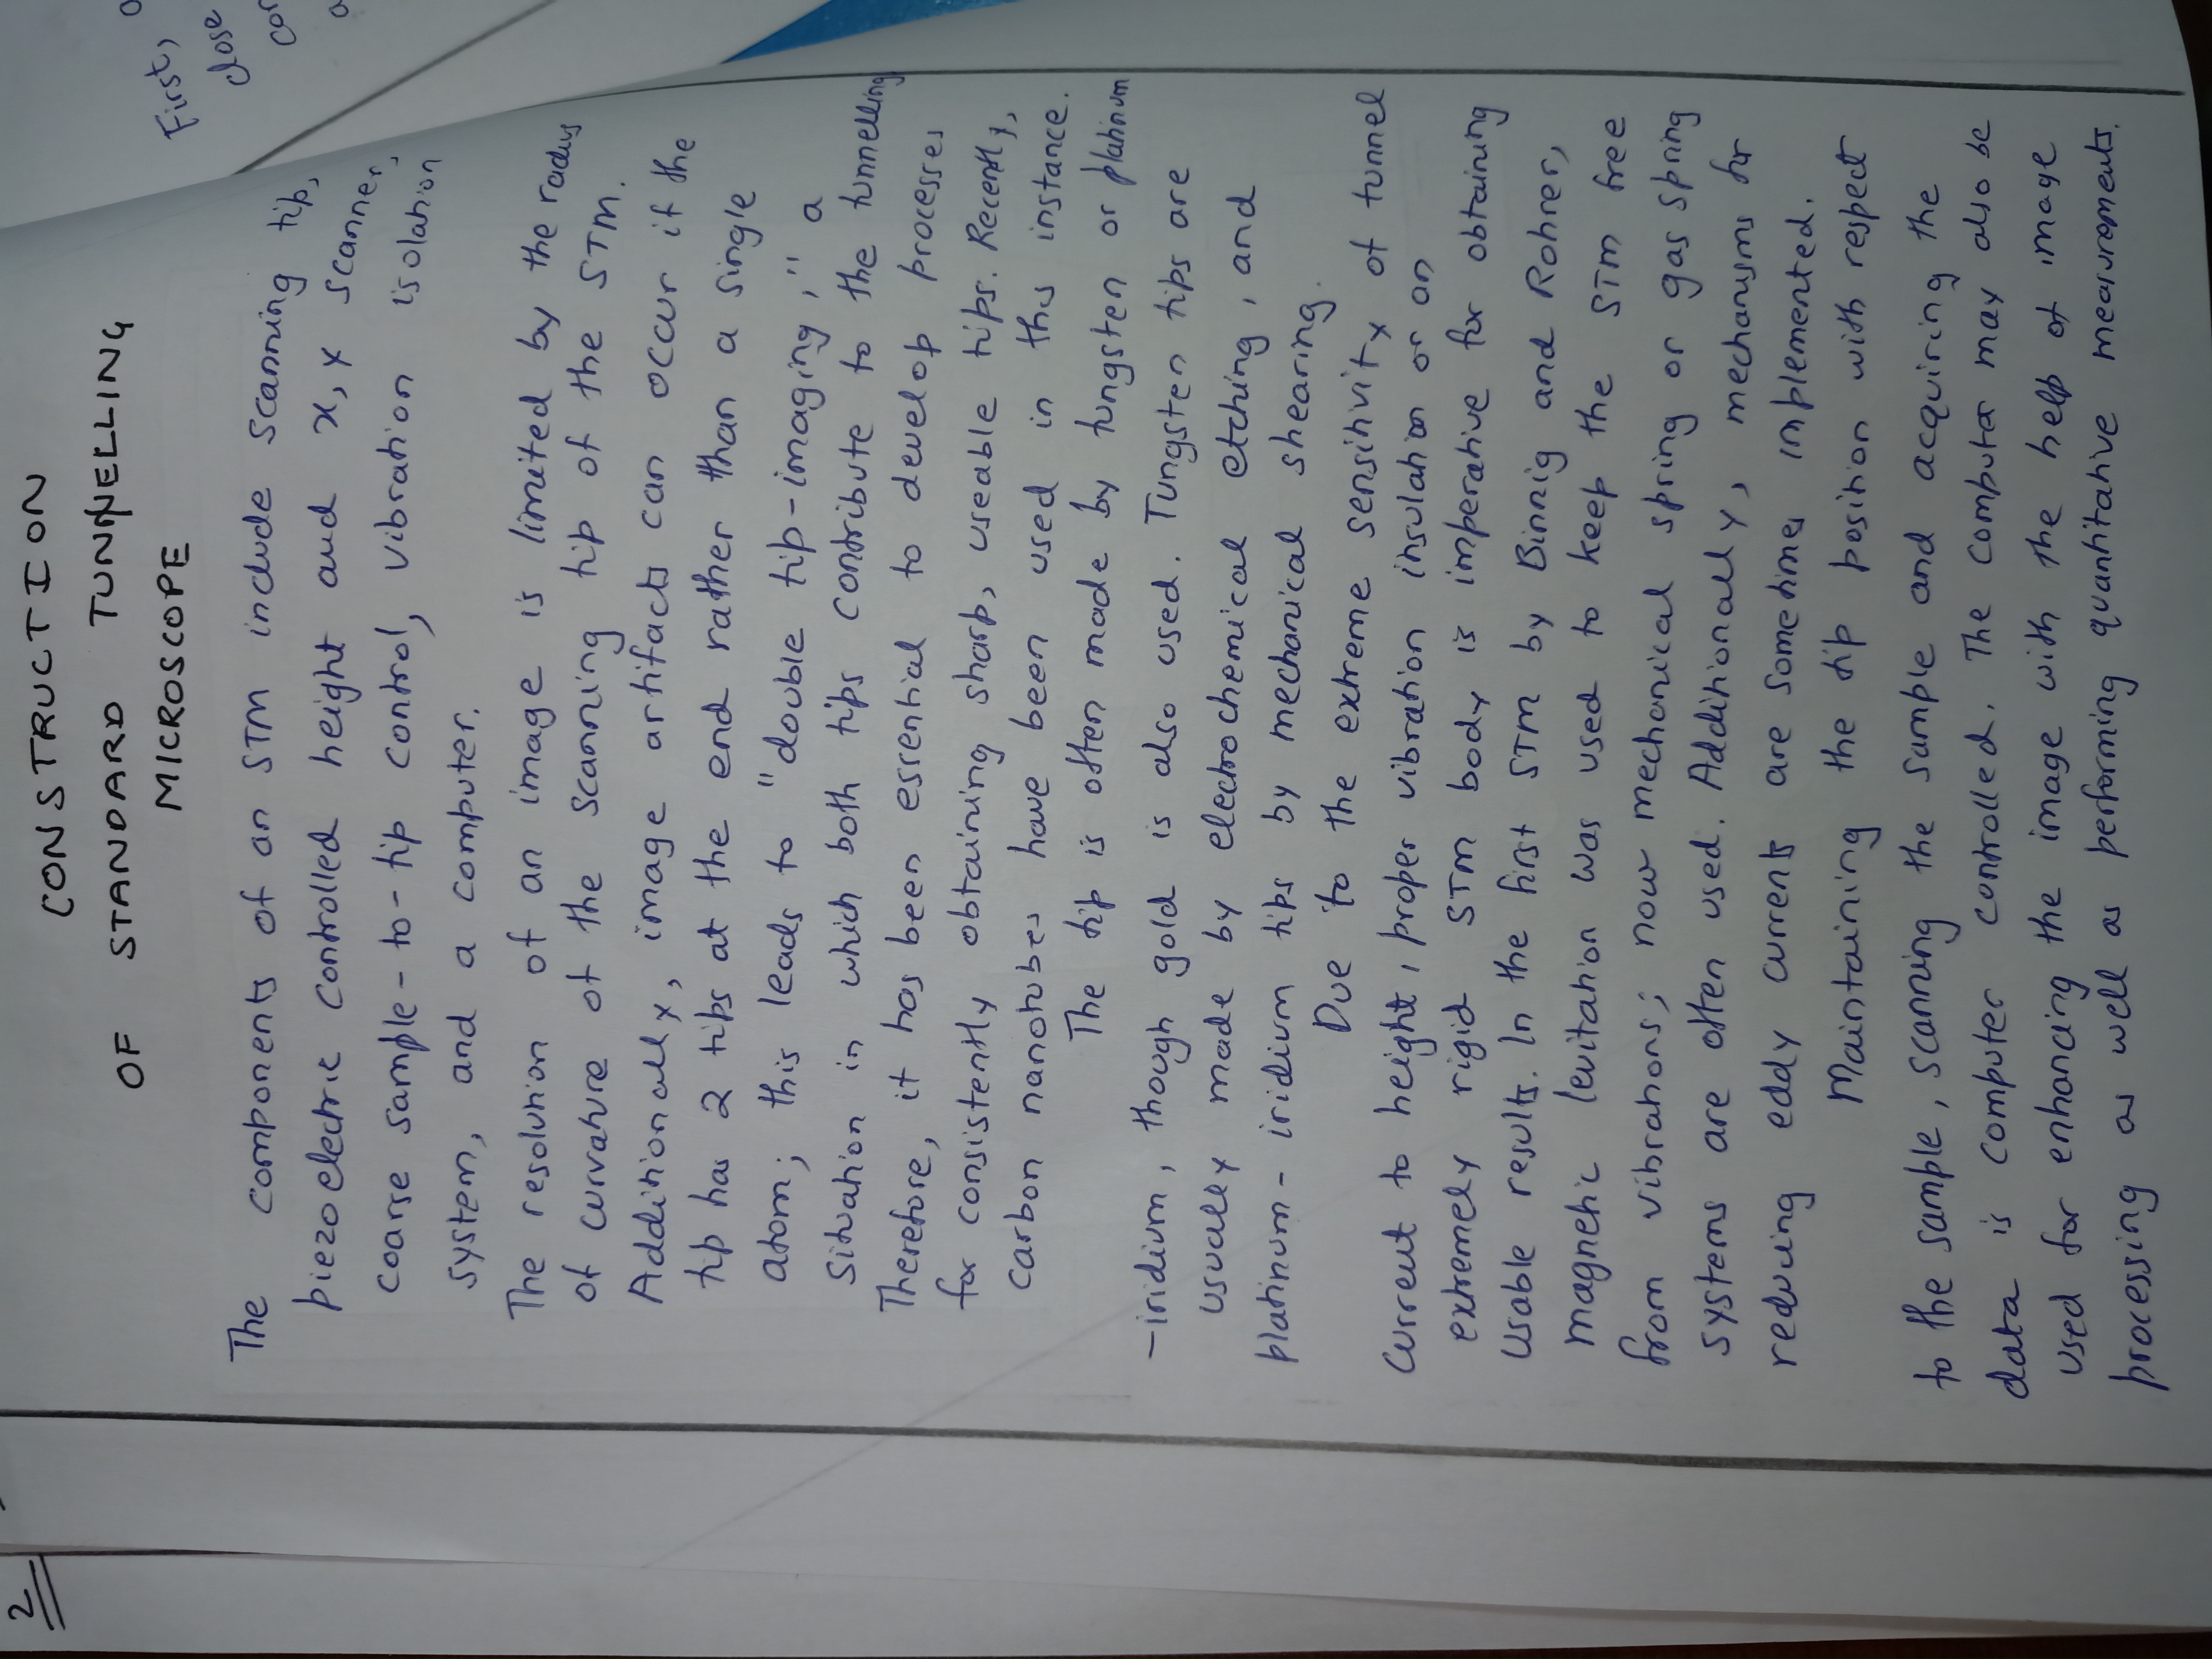 2
CONSTRUCTION
OF STANDARD TUNNELLING
MICROSCOPE
The components of an STM include scanning tip,
piezoelectric controlled height and x, y scanner,
coarse sample-to-tip control, vibration isolation
system, and a computer.
The resolution of an image is limited by the radius
of curvature of the scanning tip of the STM.
Additionally, image artifacts can occur if the
tip has 2 tips at the end rather than a single
atom; this leads to "double tip-imaging," a
situation in which both tips contribute to the tunnelling
Therefore, it has been essential to develop processes
for consistently obtaining sharp, useable tips. Recently,
carbon nanotubes have been used in this instance.
The tip is often made by tungsten or platinum
-iridium, though gold is also used. Tungsten tips are
usually made by electrochemical etching, and
platinum-iridium tips by mechanical shearing.
Due to the extreme sensitivity of tunnel
current to height, proper vibration insulation or an
extremely rigid STM body is imperative for obtaining
usable results. In the first STM by Binnig and Rohrer,
magnetic levitation was used to keep the STM free
from vibrations; now mechanical spring or gas spring
systems are often used. Additionally, mechanisms for
reducing eddy currents are sometimes implemented.
Maintaining the tip position with respect
to the sample, scanning the sample and acquiring the
data is computer controlled. The computer may also be
used for enhancing the image with the help of image
processing as well as performing quantitative measurements.
First,
close